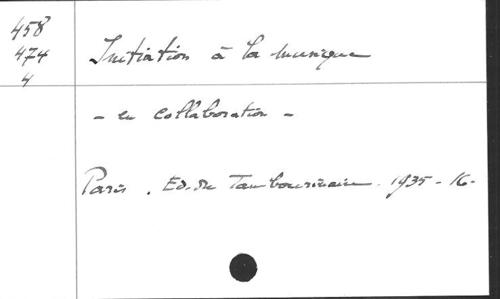 458
474
4
Initiation à la musique
- en collaboration -
Paris. Ed. du Tambourinaire. 1935 - 16-